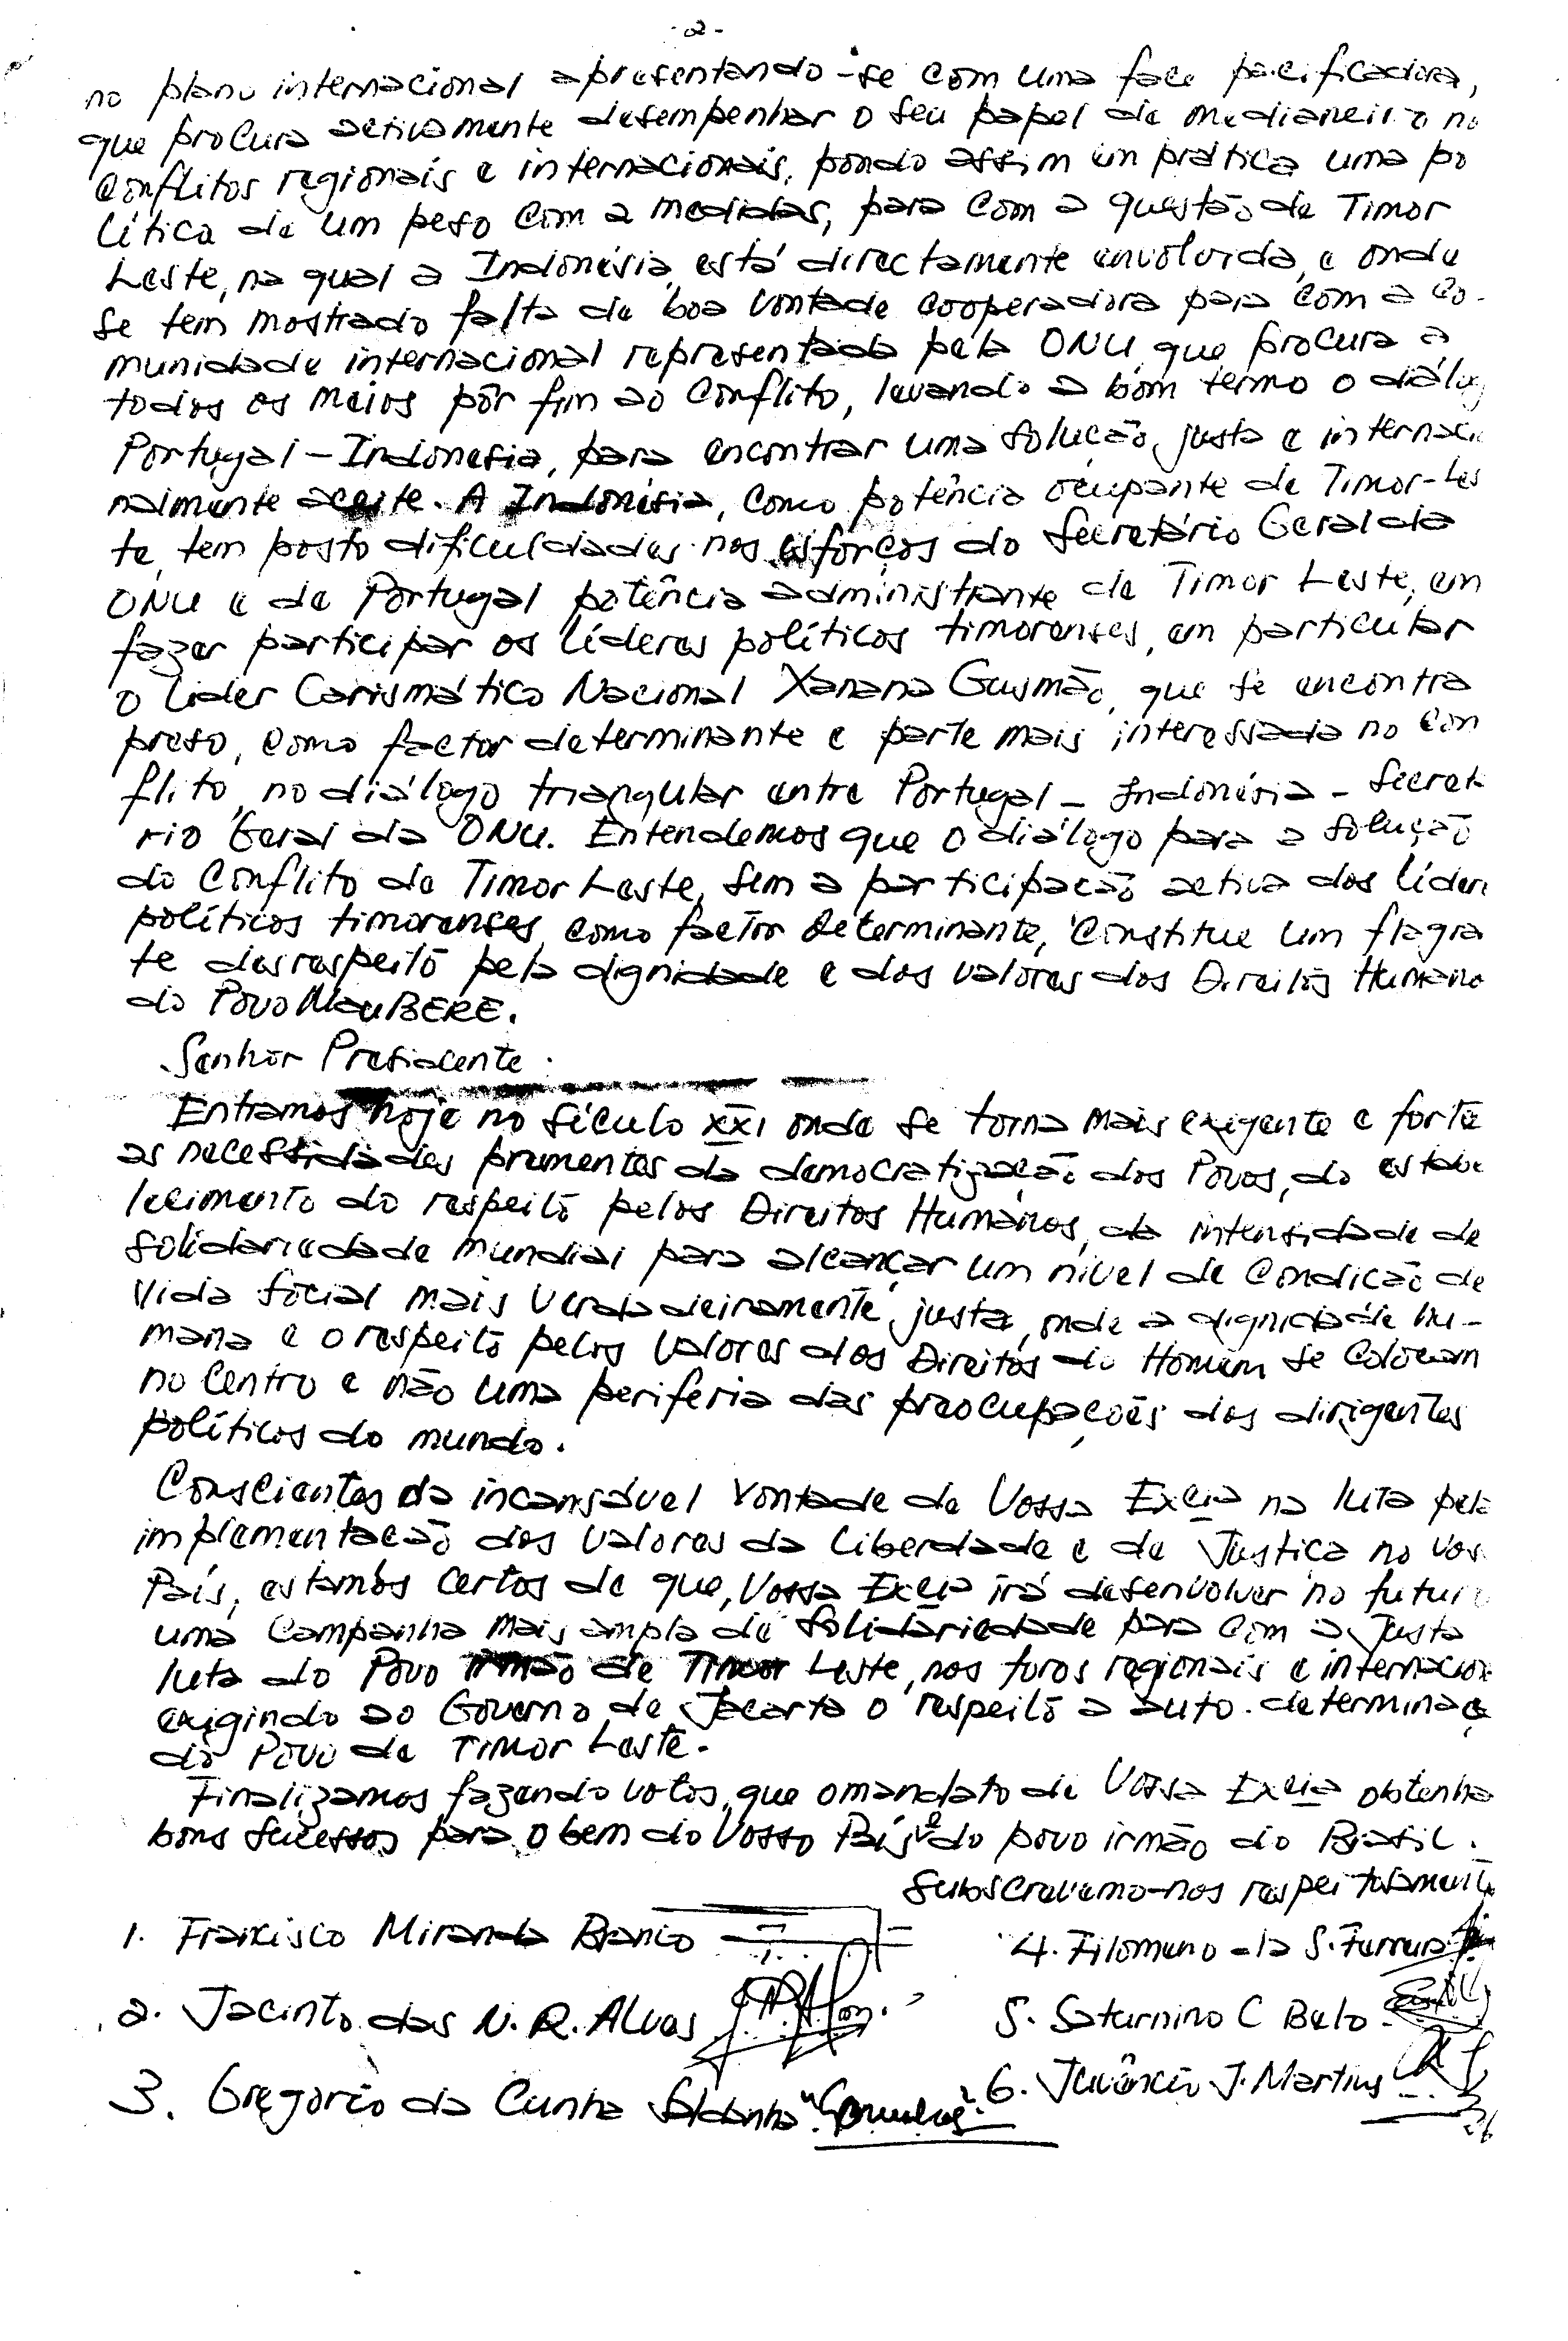 -2-
no plano internacional apresentando-se com uma face pacificadora,
que procura activamente desempenhar o seu papel de medianeiro no
conflitos regionais e internacionais, pondo assim em prática uma po
lítica de um peso com 2 medidas, para com a questão de Timor
Leste, na qual a Indonésia está directamente envolvida, e onde
se tem mostrado falta de boa vontade cooperadora para com a co-
munidade internacional representada pela ONU, que procura a
todos os meios pôr fim ao conflito, levando a bom termo o diálog
Portugal-Indonesia, para encontrar uma solução, justa e internaci
nalmente aceite. A Indonésia, como potência ocupante de Timor-Les
te, tem posto dificuldades nos esforços do Secretário Geral da
ONU e de Portugal potência administrante de Timor Leste, em
fazer participar os líderes políticos timorenses, em particular
o líder Carismático Nacional Xanana Gusmão, que se encontra
preso, como factor determinante e parte mais interessada no con
flito, no diálogo triangular entre Portugal - Indonésia - Secret
rio Geral da ONU. Entendemos que o diálogo para a solução
do conflito de Timor Leste, sem a participação activa dos líder
políticos timorenses, como factor determinante, constitue um flagra
te desrespeito pela dignidade e dos valores dos Direitos Humano
do Povo MauBERE.
Senhor Presidente
Entramos hoje no século XXI onde se torna mais exigente e forte
as necessidades prementes da democratização dos Povos, do estabe
lecimento do respeito pelos Direitos Humanos, da intensidade de
solidariedade mundial para alcançar um nível de condição de
vida social mais verdadeiramente justa, onde a dignidade hu-
mana e o respeito pelos valores dos Direitos do Homem se colocam
no centro e não uma periferia das preocupações dos dirigentes
políticos do mundo.
Conscientes da incansável vontade de Vossa Excia na luta pela
implementação dos valores da liberdade e de Justiça no vos
País, estamos certos de que, Vossa Excia irá desenvolver no futuro
uma Campanha mais ampla de solidariedade para com a Justa
luta do Povo irmão de Timor Leste, nos foros regionais e internacion
exigindo ao Governo de Jacarta o respeito a auto-determinaç
do Povo de Timor Leste.
Finalizamos fazendo votos, que o mandato de Vossa Excia obtenha
bons sucessos para o bem do Vosso País e do povo irmão do Brasil.
Subscrevemo-nos respeitosamente
1. Francisco Miranda Branco
4. Filomeno da S. Ferreira
2. Jacinto das N. R. Alves
5. Saturnino C Belo
3. Gregório da Cunha Saldanha
6. Juvêncio J. Martins